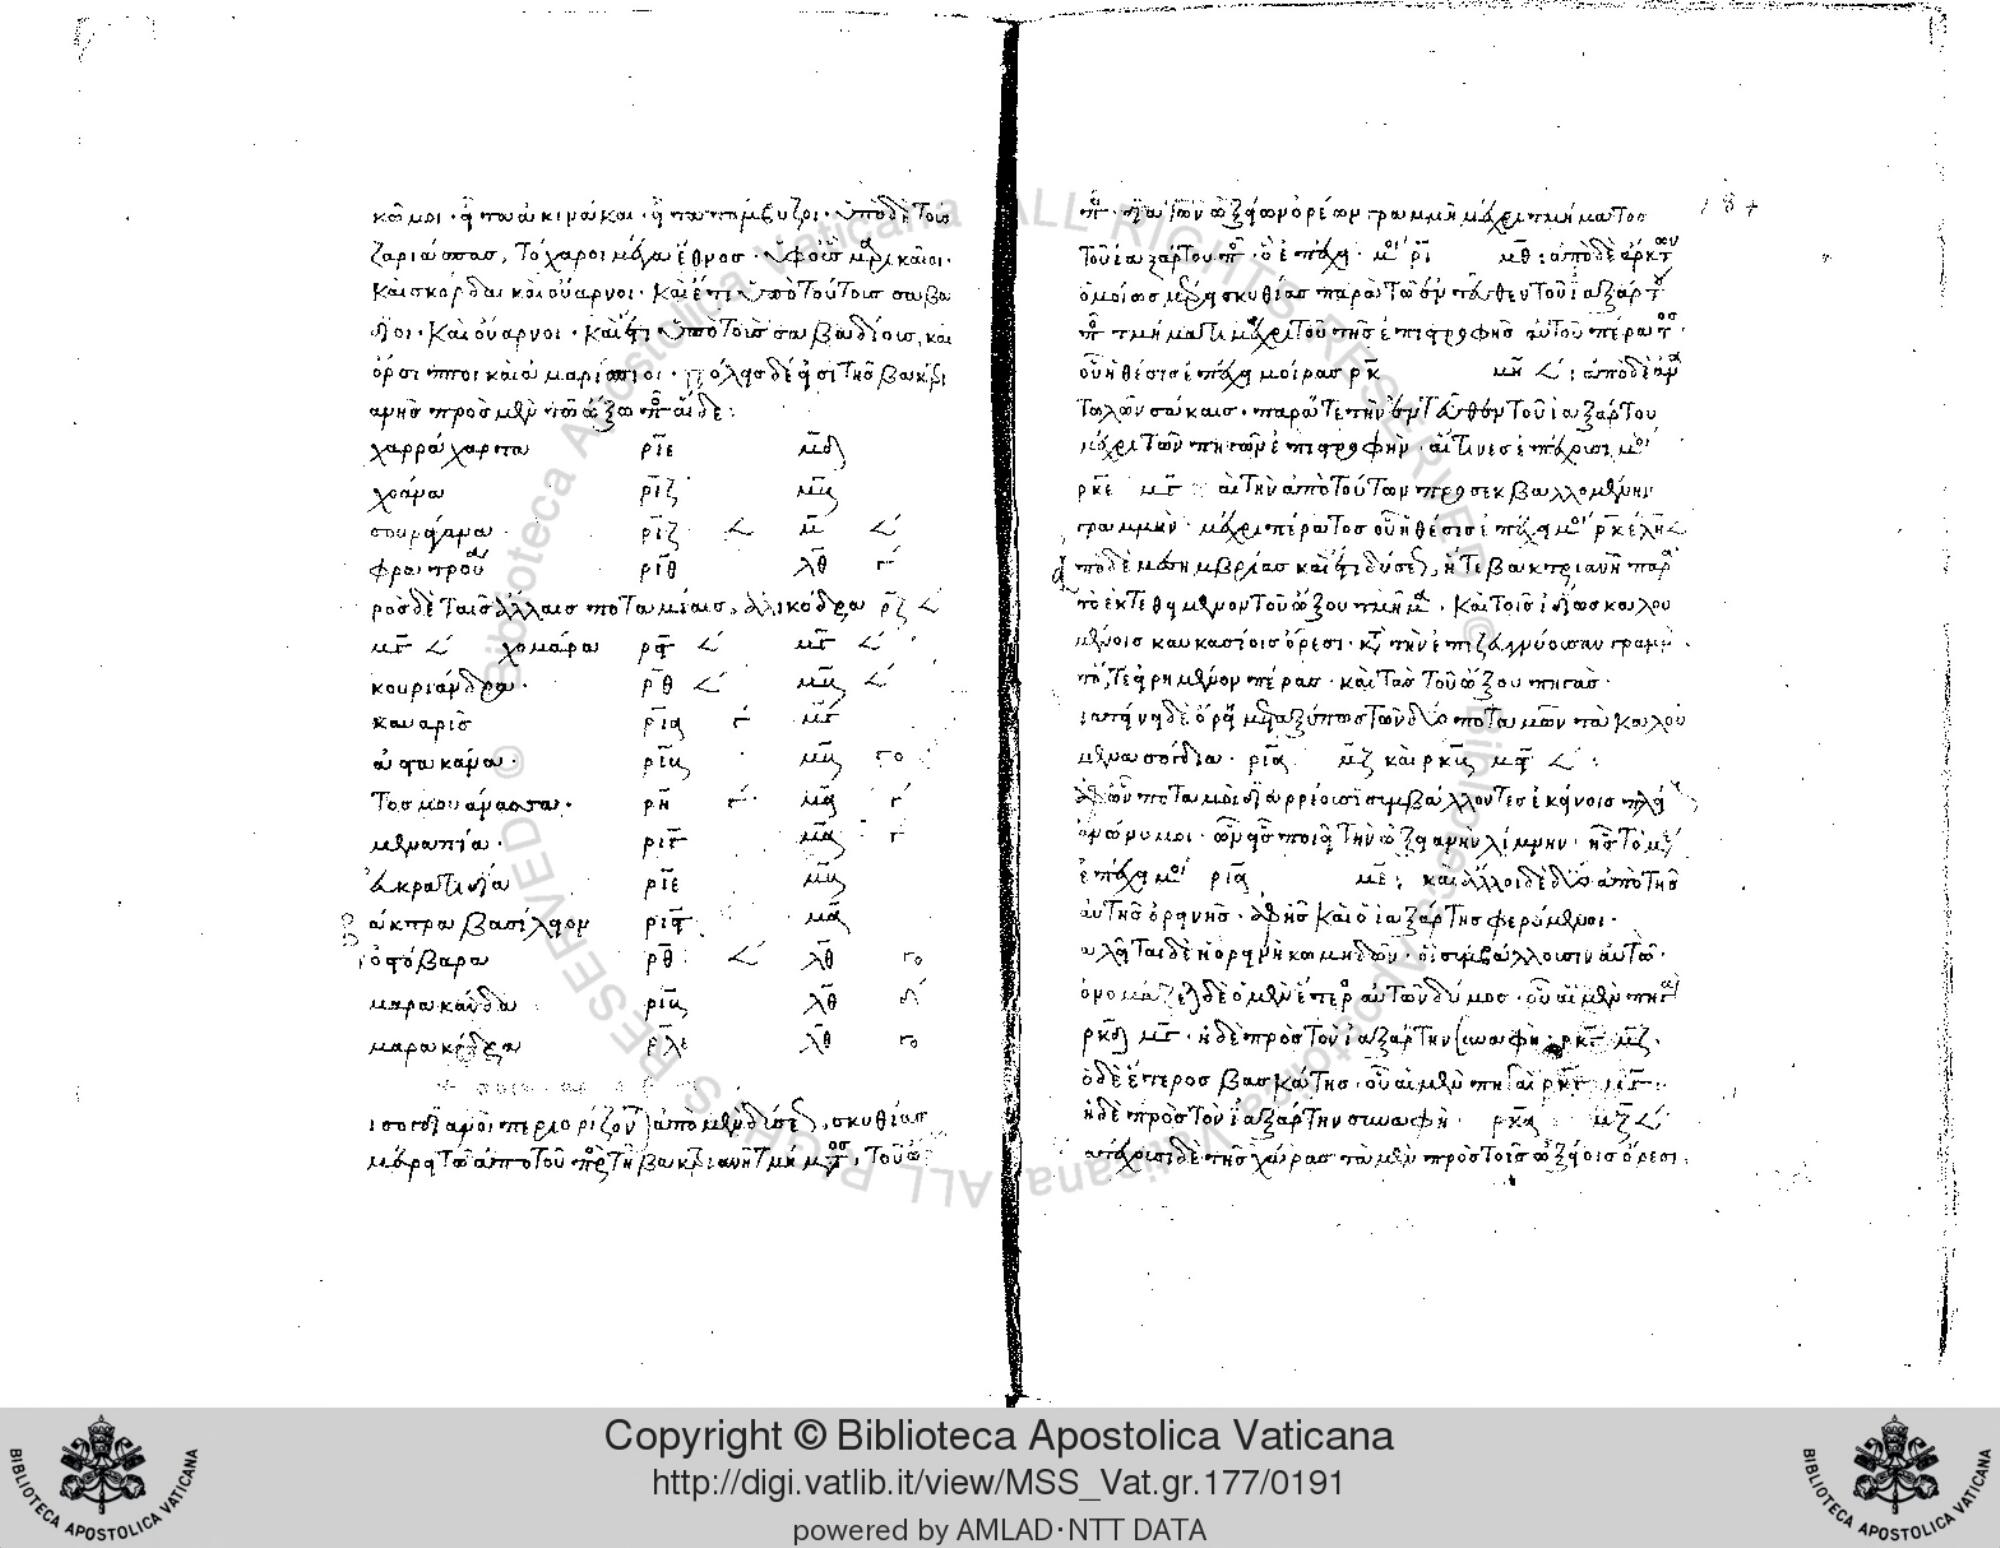 κῶμοι · εἶτα ἀκινάκαι · εἶτα ταμβύζοι · ὑπὸ δὲ τοὺς
ζαριάσπας, τόχαροι μέγα ἔθνος · ὑφ' οἷς μαρυκαῖοι ·
καὶ σκόρδαι καὶ οὔαρνοι · καὶ ἔτι ὑπὸ τούτους σαβα
δίοι · καὶ οὔαρνοι · καὶ ἔτι ὑπὸ τοὺς σαβαδίους, καὶ
ὀρσίπποι καὶ ἀμαρίσποι · πόλεις δέ εἰσι τῆς βακτρι
ανῆς πρὸς μὲν τῷ ὤξῳ ποτ αἵδε :
χαρράχαρτα ριε μδ
χοάνα ριζ μβ
σουράγανα ριζ 𐅵 μ 𐅵
φράτρου ριθ λθ γ
πρὸς δὲ ταῖς ἄλλαις ποταμίαις, ἀλικόδρα ρζ 𐅵
μγ 𐅵 χομάρα ρϛ 𐅵 μγ 𐅵
κουριάνδρα · ρθ 𐅵 μβ 𐅵
καυαρὶς ρια γ μγ
ἀστακάνα · ριβ μβ γο
τοσμουάνασσα · ρη γ μα γ
μεναπία · ριγ μα γ
εὐκρατιδία ριε μβ
βάκτρα βασίλειον ριϛ μα
ὀστόβαρα ρθ 𐅵 λθ γο
μαρακάνδα ριβ λθ δ
μαρακόδρα ριε λθ γο
οἱ σογδιανοὶ περιορίζονται ἀπὸ μὲν δύσεως, σκυθίας
μέρει τῷ ἀπὸ τοῦ πρὸς τῇ βακτριανῇ τμήματος, τοῦ ὤ
ποτ · διὰ τῶν ὠξείων ὀρέων γραμμῇ μέχρι τμήματος
τοῦ ἰαξάρτου ποτ · ὃ ἐπέχει · μοι ρι μθ : ἀπὸ δὲ ἄρκτων
ὁμοίως μέρει σκυθίας παρὰ τῷ ἐντεῦθεν τοῦ ἰαξάρτου
ποτ τμήματι μέχρι τοῦ τῆς ἐπιστροφῆς αὐτοῦ πέρατος ·
οὗ ἡ θέσις ἐπέχει μοίρας ρκ μη 𐅵 : ἀπὸ δὲ ἀνα
τολῶν σάκαις · παρά τε τὴν ἐντεῦθεν τοῦ ἰαξάρτου
μέχρι τῶν πηγῶν ἐπιστροφὴν · αἵτινες ἐπέχουσι μοι
ρκε μγ καὶ τὴν ἀπὸ τούτων προσεκβαλλομένην
γραμμὴν · μέχρι πέρατος οὗ ἡ θέσις ἐπέχει μοι ρκε λη 𐅵
ἀπὸ δὲ μεσημβρίας καὶ ἔτι δύσεως, ἥ τε βακτριανὴ παρὰ
τὸ ἐκτεθειμένον τοῦ ὤξου τμῆμα · καὶ τοῖς ἰδίως καλου
μένοις καυκασίοις ὄρεσι · κατὰ τὴν ἐπιζευγνύουσαν γραμμὴν
τό, τε εἰρημένον πέρας · καὶ τὰς τοῦ ὤξου πηγὰς ·
διατείνει δὲ ὄρη μεταξύ πως τῶν δύο ποταμῶν τὰ καλού
μενα σόγδια · ρια μζ καὶ ρκβ μϛ 𐅵 :
ἀφ' ὧν ποταμοὶ διαρρέουσι συμβάλλοντες ἐκείνοις πλεί
ονες ἀνώνυμοι · ὧν εἷς ποιεῖ τὴν ὠξειανὴν λίμνην · ἧς τὸ μέσον
ἐπέχει μοι ρια με : καὶ ἄλλοι δὲ δύο ἀπὸ τῆς
αὐτῆς ὀρεινῆς · ἀφ' ἧς καὶ ὁ ἰαξάρτης φερόμενοι ·
καλεῖται δὲ ἡ ὀρεινὴ κομηδῶν · οἳ συμβάλλουσιν αὐτῷ ·
ὀνομάζεται δὲ ὁ μὲν ἕτερος αὐτῶν δύμος · οὗ αἱ μὲν πηγαὶ
ρκδ μγ · ἡ δὲ πρὸς τὸν ἰαξάρτην συναφὴ · ρκγ μζ ·
ὁ δὲ ἕτερος βασκάτης · οὗ αἱ μὲν πηγαὶ ρκγ μγ ·
ἡ δὲ πρὸς τὸν ἰαξάρτην συναφὴ · ρκα μζ 𐅵
κατέχουσι δὲ τῆς χώρας τὰ μὲν πρὸς τοῖς ὠξείοις ὄρεσι ·
Copyright © Biblioteca Apostolica Vaticana
http://digi.vatlib.it/view/MSS_Vat.gr.177/0191
powered by AMLAD·NTT DATA